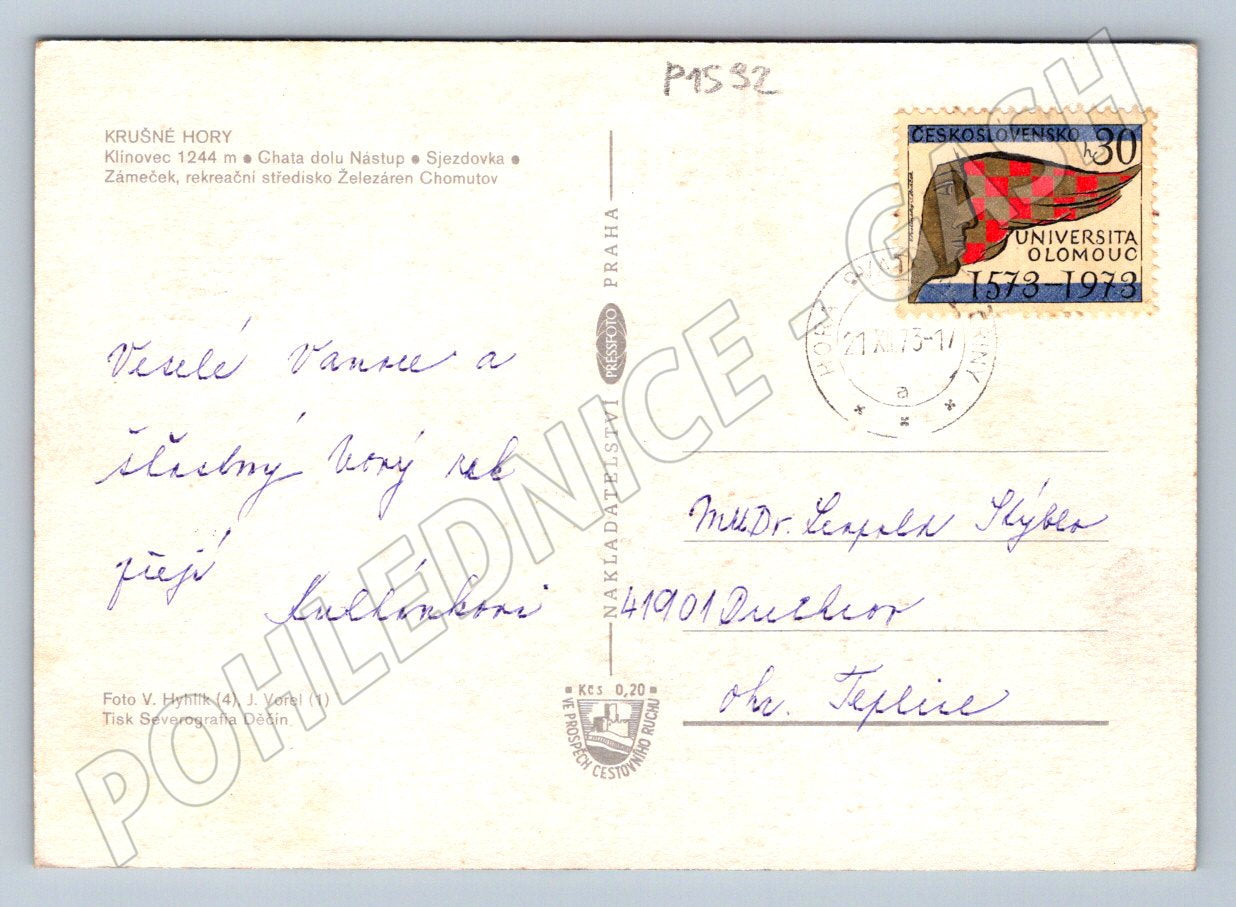 P1592
KRUŠNÉ HORY
Klínovec 1244 m • Chata dolu Nástup • Sjezdovka •
Zámeček, rekreační středisko Železáren Chomutov
ČESKOSLOVENSKO 30 h
UNIVERSITA
OLOMOUC
1573-1973
HORA
21.XI.73-17
a
Veselé Vánoce a
šťastný Nový rok
přejí
NAKLADATELSTVÍ PRESSFOTO PRAHA
MUDr. Leopold
41901 Duchcov
okr. Teplice
Foto V. Hyhlík (4), J. Vorel (1)
Tisk Severografia Děčín
Kčs 0,20
VE PROSPĚCH CESTOVNÍHO RUCHU
POHLEDNICE - GASH